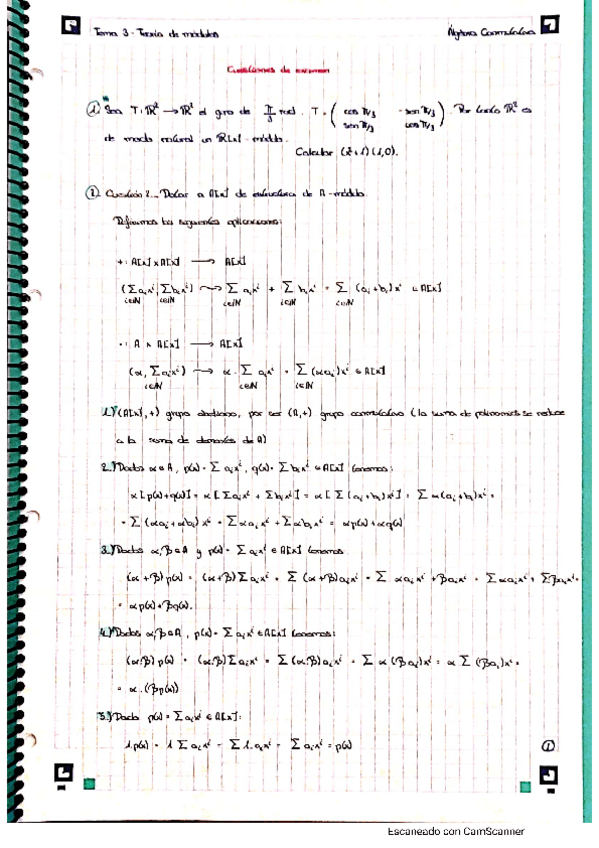 Tema 3 - Teoría de módulos Álgebra Conmutativa
Cuestiones de examen
1. Sea T: ℝ² → ℝ² el giro de π/3 rad. T = ( cos π/3 - sen π/3 ) . Por tanto ℝ² es
sen π/3 cos π/3
de modo natural un ℝ[x]-módulo.
Calcular (x²+1)(1,0).
2. Cuestión 2._ Dotar a A[x] de estructura de A-módulo.
Definimos las siguientes aplicaciones:
+ : A[x] x A[x] → A[x]
(Σ aᵢxⁱ, Σ bᵢxⁱ) ⇝ Σ aᵢxⁱ + Σ bᵢxⁱ = Σ (aᵢ+bᵢ)xⁱ ∈ A[x]
i∈ℕ i∈ℕ i∈ℕ i∈ℕ i∈ℕ
· : A x A[x] → A[x]
(α, Σ aᵢxⁱ) ⇝ α · Σ aᵢxⁱ = Σ (αaᵢ)xⁱ ∈ A[x]
i∈ℕ i∈ℕ i∈ℕ
1.) (A[x],+) grupo abeliano, por ser (A,+) grupo conmutativo (la suma de polinomios se reduce
a la suma de elementos de A)
2.) Dados α∈A, p(x) = Σ aᵢxⁱ, q(x) = Σ bᵢxⁱ ∈ A[x] tenemos:
α[p(x)+q(x)] = α[Σ aᵢxⁱ + Σ bᵢxⁱ] = α[Σ (aᵢ+bᵢ)xⁱ] = Σ α(aᵢ+bᵢ)xⁱ =
= Σ (αaᵢ+αbᵢ)xⁱ = Σ αaᵢxⁱ + Σ αbᵢxⁱ = αp(x)+αq(x)
3.) Dados α,β∈A y p(x) = Σ aᵢxⁱ ∈ A[x] tenemos
(α+β)p(x) = (α+β) Σ aᵢxⁱ = Σ (α+β)aᵢxⁱ = Σ αaᵢxⁱ + βaᵢxⁱ = Σ αaᵢxⁱ + Σ βaᵢxⁱ =
= αp(x)+βq(x).
4.) Dados α,β∈A, p(x) = Σ aᵢxⁱ ∈ A[x] tenemos:
(α·β)p(x) = (α·β) Σ aᵢxⁱ = Σ (α·β)aᵢxⁱ = Σ α(βaᵢ)xⁱ = α Σ (βaᵢ)xⁱ =
= α·(βp(x))
5.) Dado p(x) = Σ aᵢxⁱ ∈ A[x]:
1.p(x) = 1 Σ aᵢxⁱ = Σ 1.aᵢxⁱ = Σ aᵢxⁱ = p(x)
1
Escaneado con CamScanner